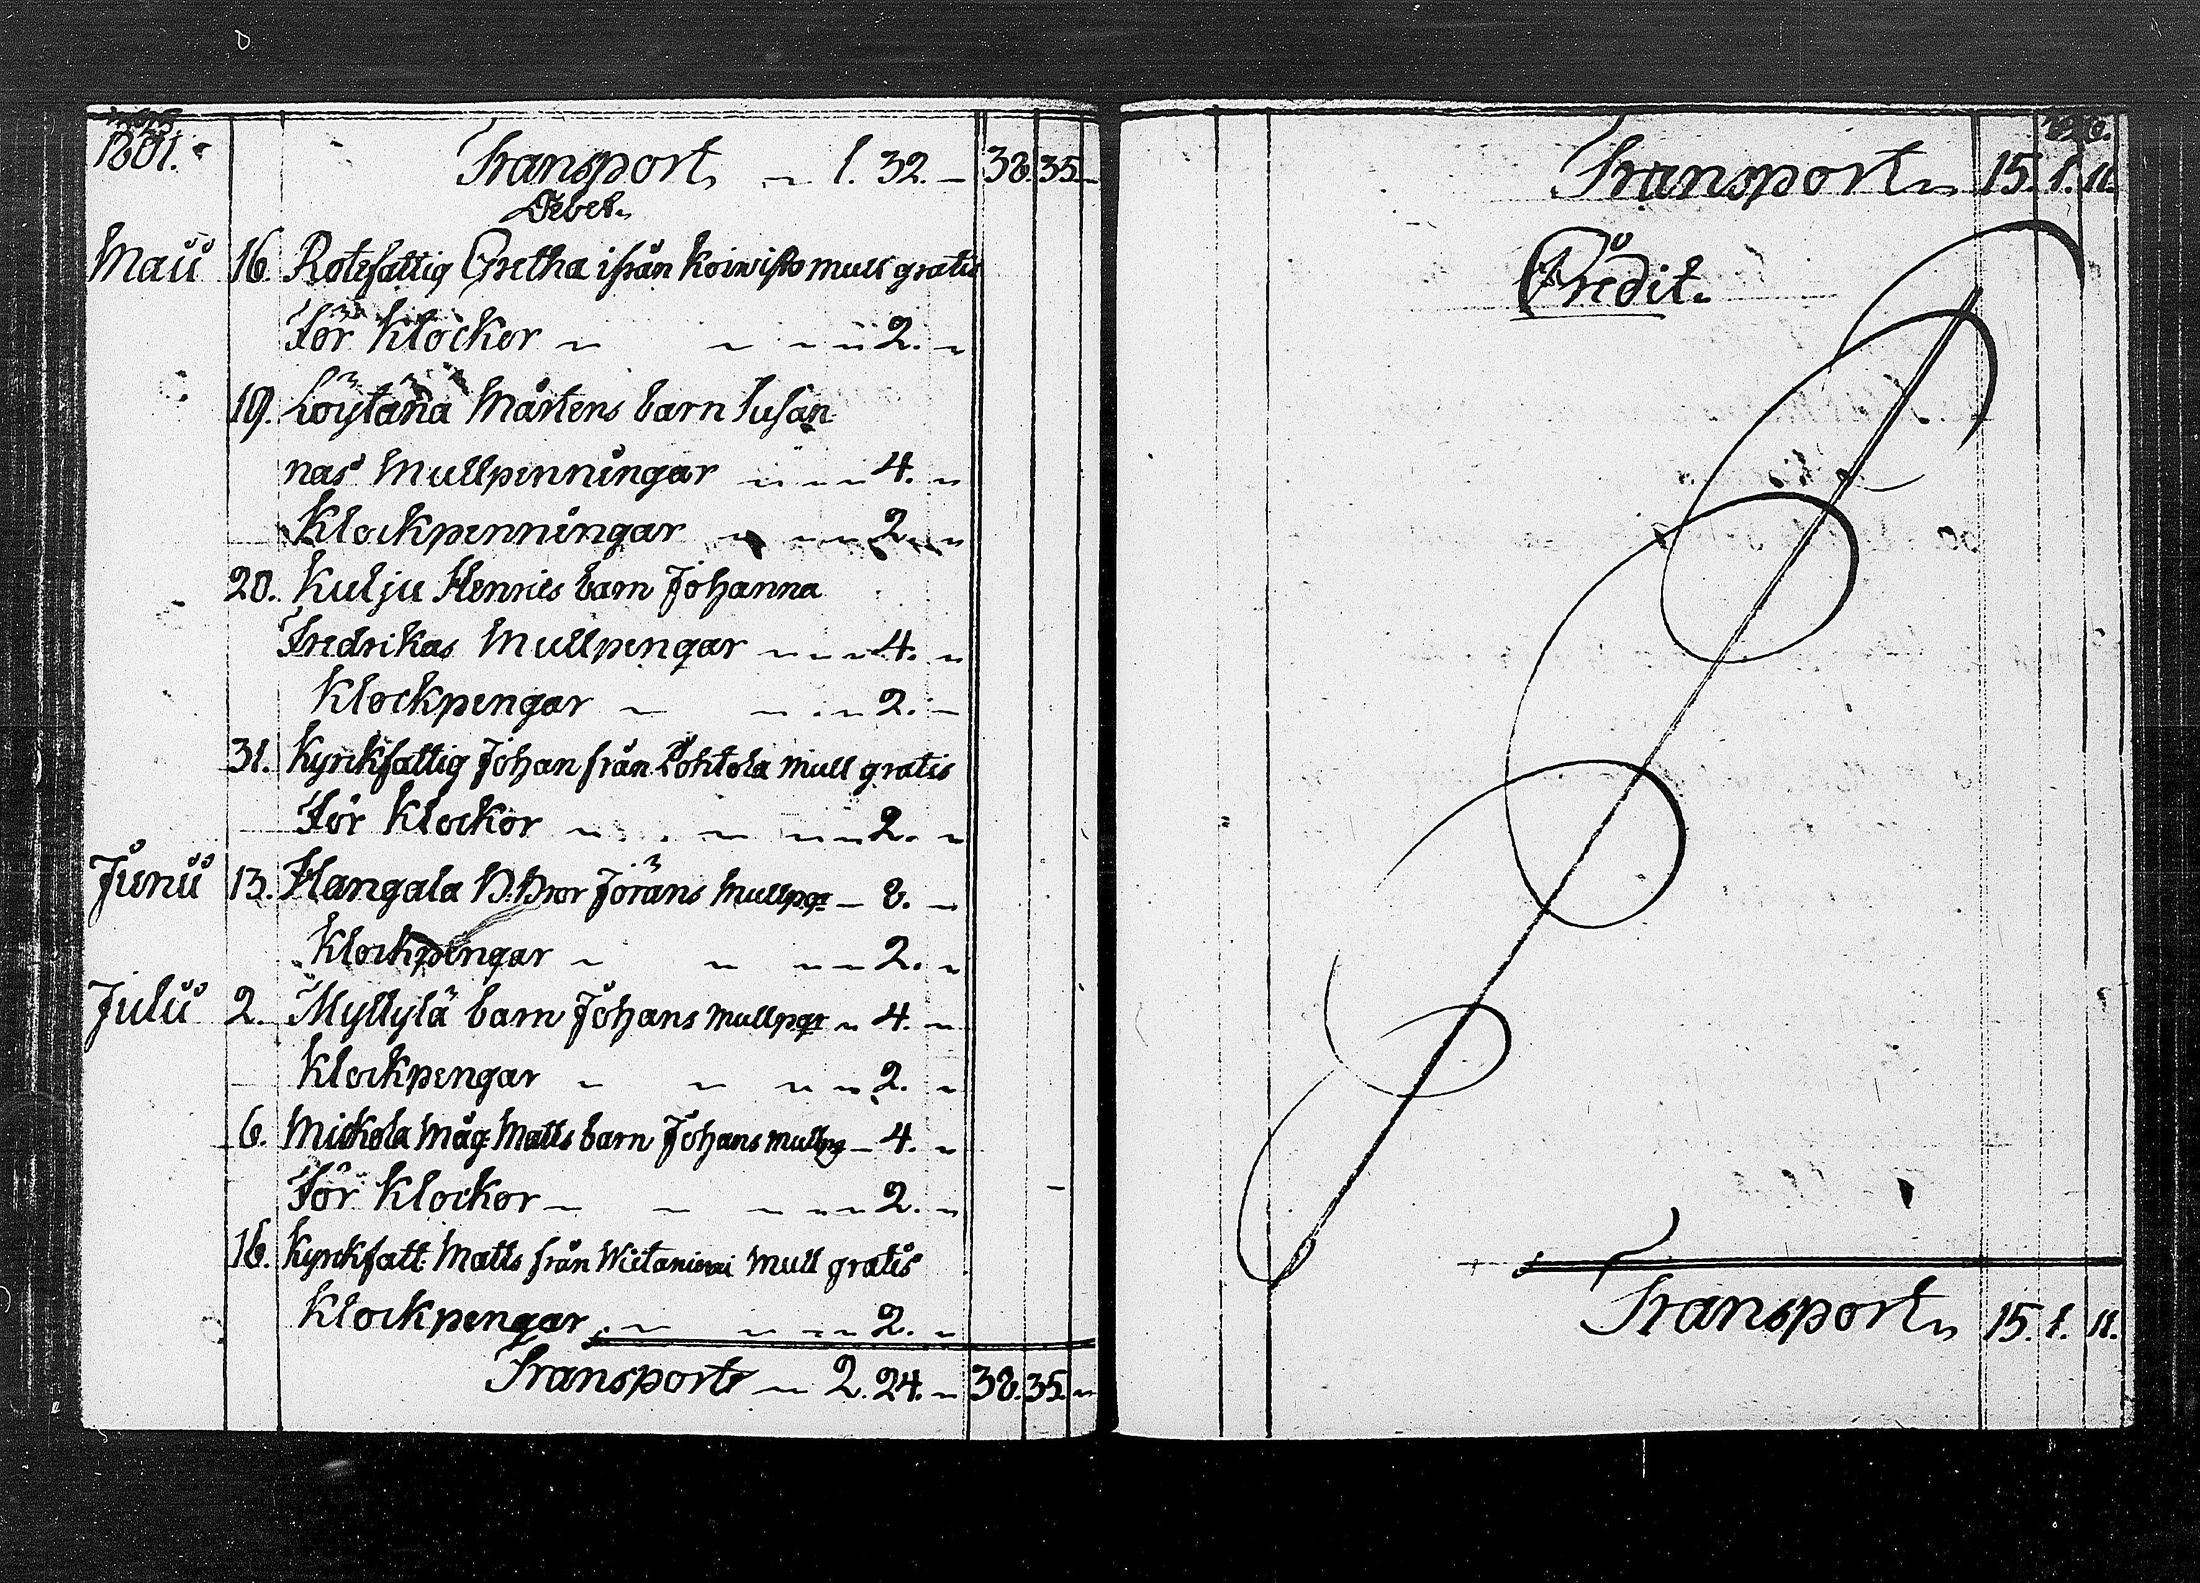 1801.
Transport „ 1. 32. „ 38. 35. „
Debet.
Maii 16. Rotefattig Gretha ifrån Koivisto mull gratis
För klockor „ „ „ „ 2. „
19. Löytänä Mårtens barn Susan
nas Mullpenningar „ „ „ 4. „
Klockpenningar „ „ „ 2. „
20. Kulju Henrics barn Johanna
Fredrikas Mullpengar „ „ „ 4. „
Klockpengar „ „ „ 2. „
31. Kyrkfattig Johan från Pohtola mull gratis
För Klockor „ „ „ „ 2. „
Junii 13. Hangala Br. Jörans Mullpgr „ 8. „
Klockpengar „ „ „ „ 2. „
Julii 2. Myllylä barn Johans Mullpgr „ 4. „
Klockpengar „ „ „ „ 2. „
6. Mickola Måg Matts barn Johans mullpg „ 4. „
För Klockor „ „ „ „ „ 2. „
16. Kyrkfatt. Matts från Wiitaniemi Mull gratis
Klockpengar „ „ „ „ 2. „
Transport „ 2. 24. „ 38. 35. „
Transport „ 15. 1. 11.
Credit.
Transport „ 15. 1. 11.